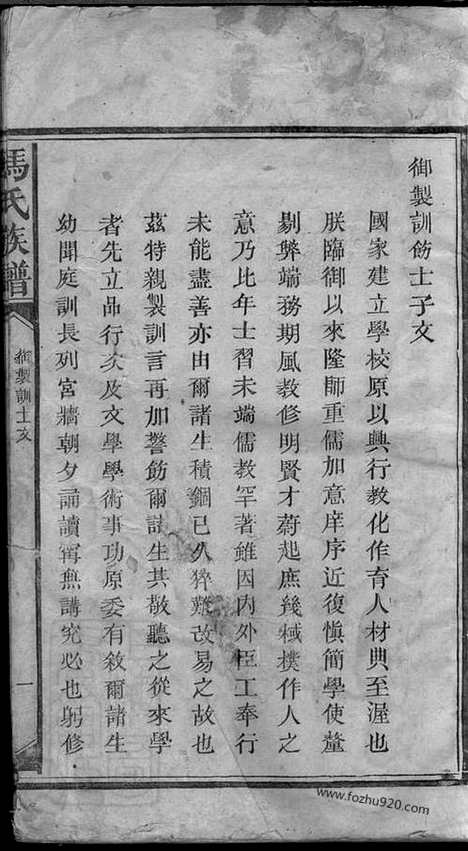 御製訓飭士子文
國家建立學校原以興行教化作育人材典至渥也
朕臨御以來隆師重儒加意庠序近復愼簡學使釐
剔弊端務期風教修明賢才蔚起庶幾棫樸作人之
意乃比年士習未端儒教罕著雖因內外臣工奉行
未能盡善亦由爾諸生積錮已久猝難改易之故也
茲特親製訓言再加警飭爾諸生其敬聽之從來學
者先立品行次及文學學術事功原委有敘爾諸生
幼聞庭訓長列宮牆朝夕誦讀寗無講究必也躬修
馬氏族譜
御製訓士文
一
www.fozhu920.com